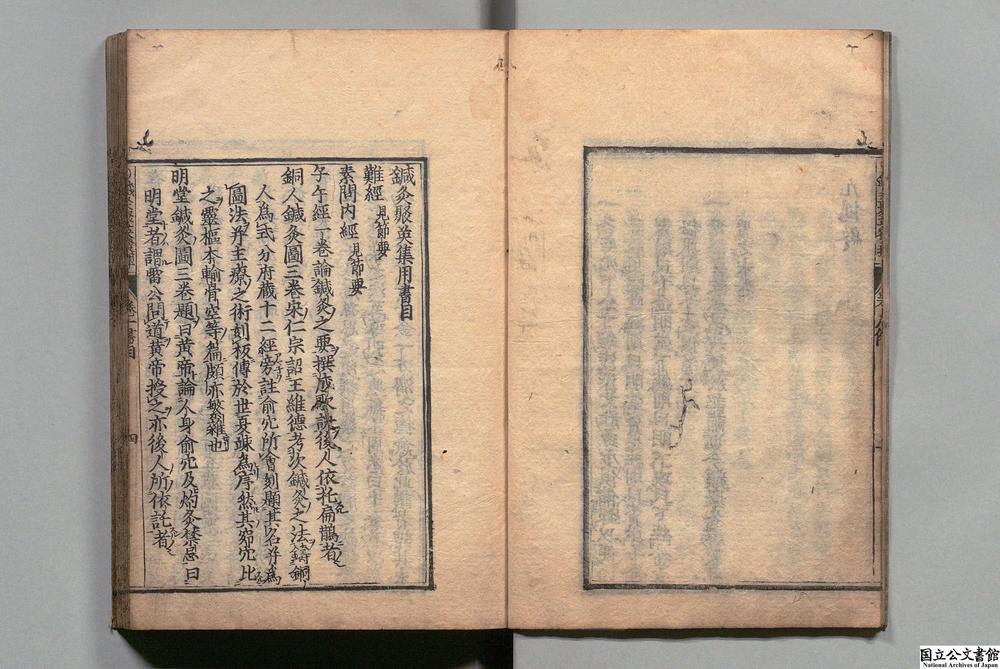 鍼灸聚英集用書目
難經見節要
素問内經見節要
子午經一卷論鍼灸之要撰成歌訣後人依托扁鵲者
銅人鍼灸圖三卷宋仁宗詔王維德考次鍼灸之法鑄銅
人為式分府藏十二經旁註俞穴所會刻題其名并為
圖法并主療之術刻板傳於世夏竦為序然其窌穴比
之靈樞本輸骨空等篇頗亦繁雜也
明堂鍼灸圖三卷題曰黄帝論人身俞穴及灼灸禁忌曰
明堂者謂雷公問道黄帝授之亦後人所依託者
卷一書目
四
国立公文書館
National Archives of Japan